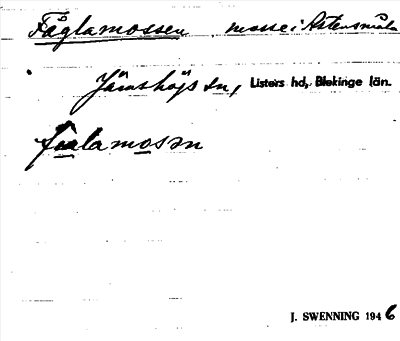 Fåglamossen mosse i
Jämshögs sn, Listers hd, Blekinge län.
J. SWENNING 1946